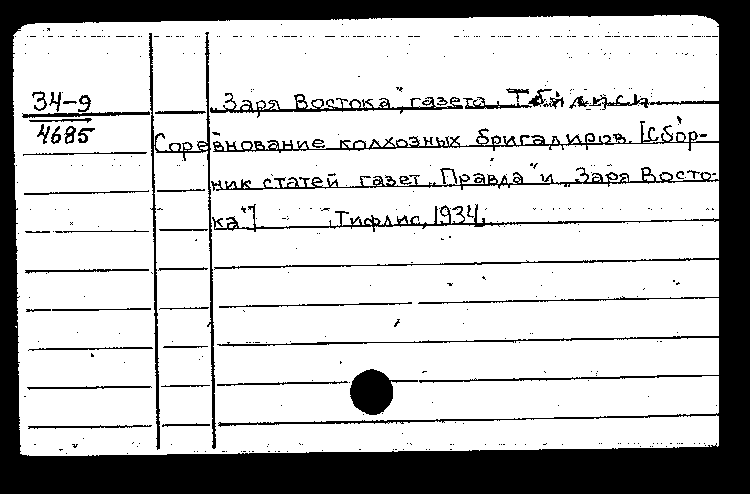 34-9
4685
„Заря Востока", газета. Тбилиси
Соревнование колхозных бригадиров. [Сбор-
ник статей газет „Правда" и „Заря Восто-
ка"] - Тифлис, 1934.